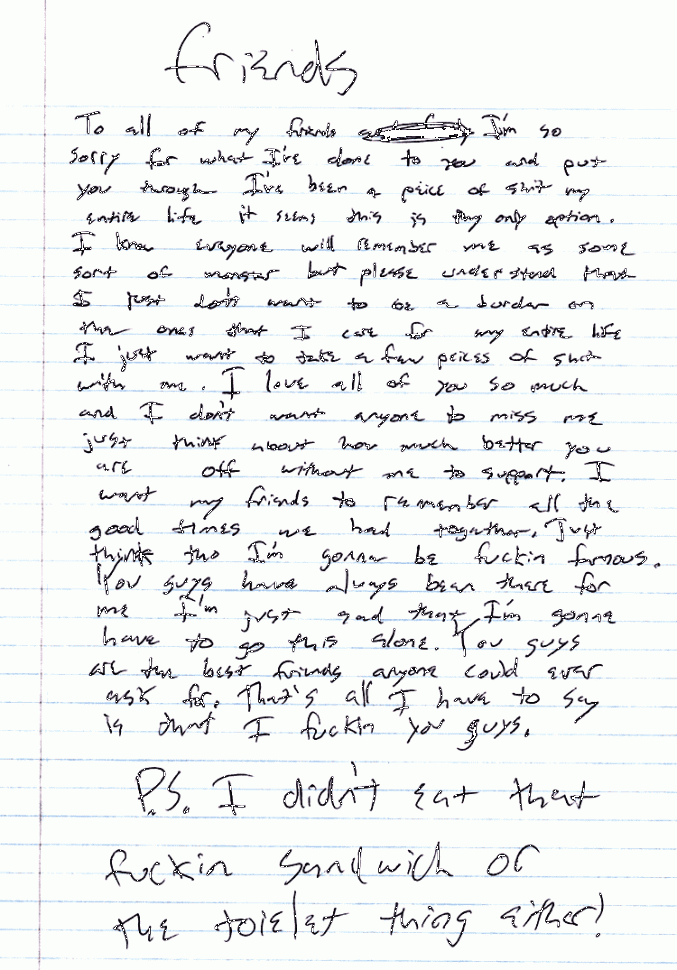 friends
To all of my friends I'm so
sorry for what I've done to you and put
you through I've been a peice of shit my
entire life it seems this is my only option.
I know everyone will remember me as some
sort of monster but please understand that
I just don't want to be a burder on
the ones that I care for my entire life
I just want to take a few peices of shit
with me. I love all of you so much
and I don't want anyone to miss me
just think about how much better you
are off without me to support. I
want my friends to remember all the
good times we had together. Just
think tho I'm gonna be fuckin famous.
You guys have always been there for
me I'm just sad that I'm gonna
have to go this alone. You guys
are the best friends anyone could ever
ask for. That's all I have to say
is that I fuckin you guys.
P.S. I didn't eat that
fuckin sandwich or
the toielet thing either!